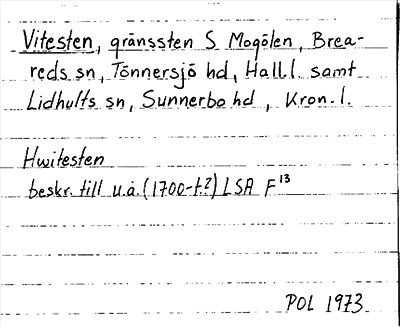 Vitesten, gränssten S Mogölen, Brea-
reds sn, Tönnersjö hd, Hall l. samt
Lidhults sn, Sunnerbo hd, Kron. l.
Hwitesten
beskr. till u.å. (1700-t?) LSA F¹³
POL 1973